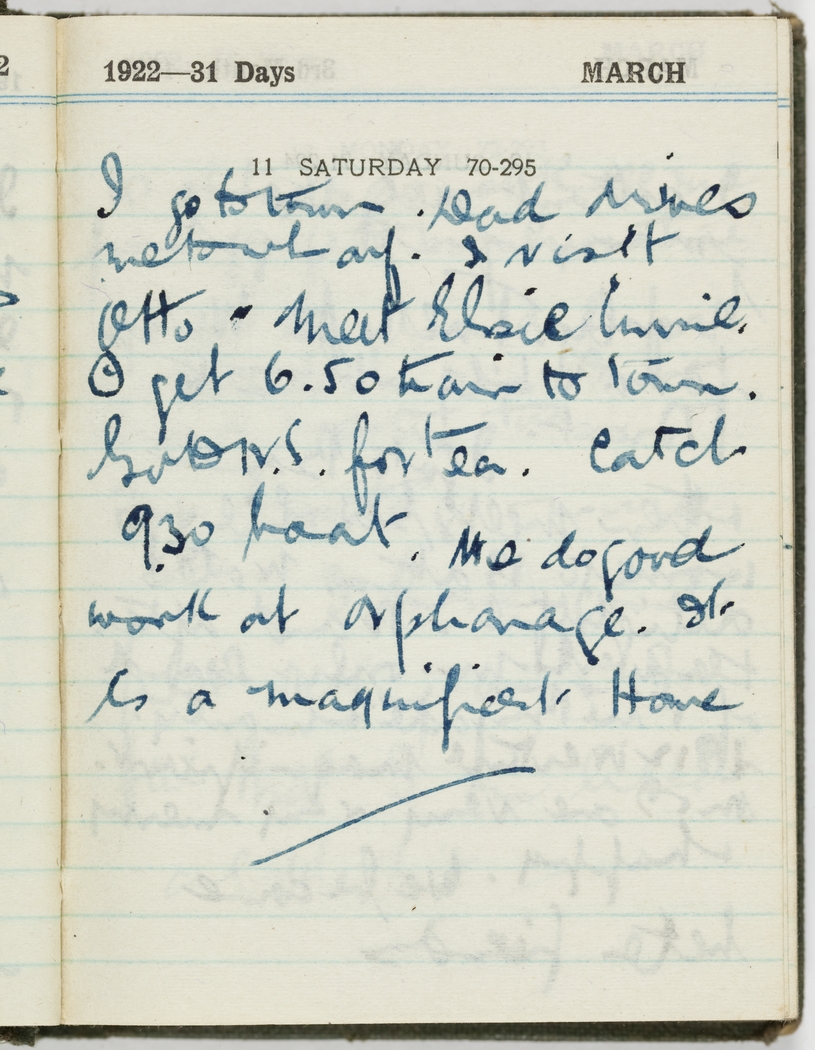 1922—31 Days MARCH
11 SATURDAY 70-295
I go to town. Dad drives
me to I visit
Otto - Meet Elsie
I get 6.50 train to town.
Go to N.S. for tea. Catch
9.30 boat. We do good
work at orphanage. It
is a magnificent Home